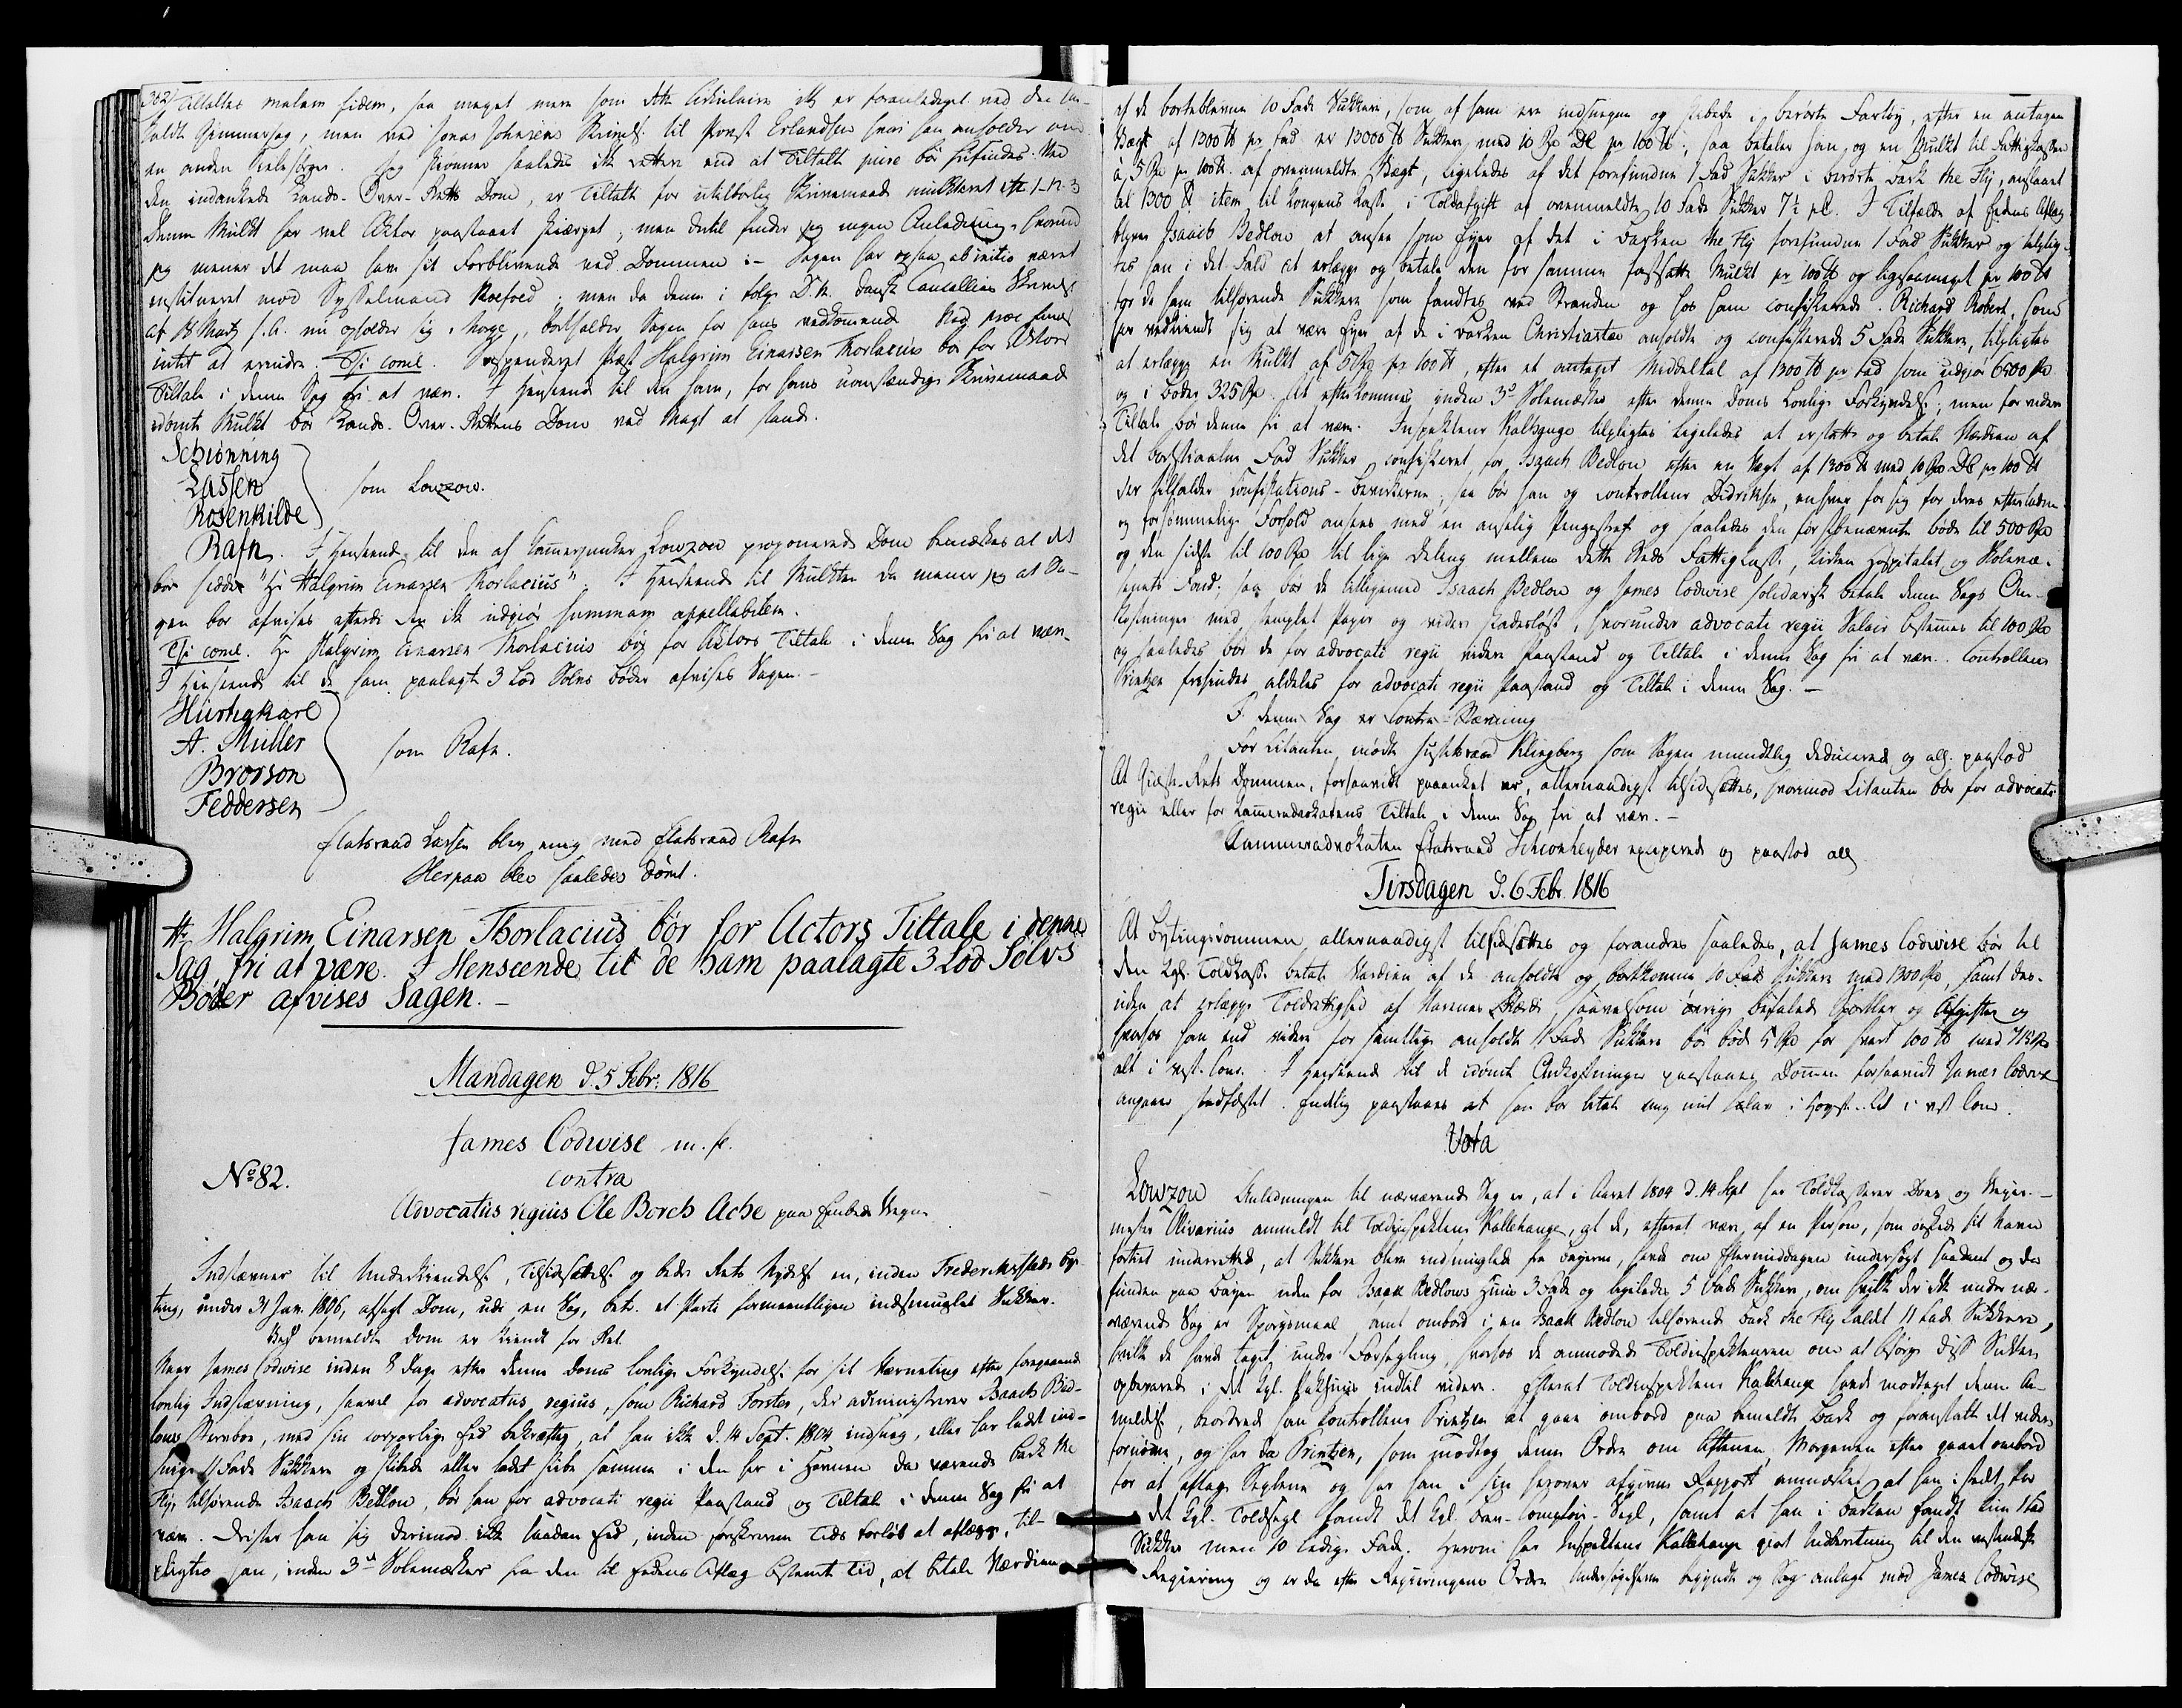 362
Tiltaltes malam fidem, saa meget mere som dette Cirkulaire ikke er foranlediget ved den
men ved Jonas Johnsens Skrivelse til Provst Erlandsen hvori han anholder om
en anden Sielesørger. Jeg skiønner saaledes ikke rettere end at Tiltalte pure bør frifindes. Ved
den indankede Lands-Over-Retts Dom, er Tiltalte for utilbørlig Skrivemaade mulkteret
Denne Mulkt har vel Aktor paastaaet skiærpet, men dertil finder jeg ingen Anledning, hvorimod
jeg mener det maa have sit Forblivende ved Dommen :- Sagen har ogsaa ab initio været
institueret mod Sysselmand Koefoed; men da denne i følge D. K. danske Cancellies Skrivelse
af Marts f. A. nu opholder sig i Norge, bortfalder Sagen for hans vedkommende
intet at erindre. Thi come. Suspenderet Præst Halgrim Einarsen Thorlacius bør for Aktors
Tiltale i denne Sag fri at være. I Henseende til den ham, for hans uanstændige Skrivemaade
idømte Mulkt bør Lands-Over-Rettens Dom ved Magt at stande.
Schiønning
Lassen
Rosenkilde
som Lowzow.
Rafn. I Henseende til den af Kammerjunker Lowzow proponerede Dom bemærkes at det
bør hedde "Hr Halgrim Einarsen Thorlacius". I Henseende til Mulkten da mener jeg at Sa-
gen bør afvises efterdi den ikke udgiør summam appellabilem.
Thi come. Hr Halgrim Einarsen Thorlacius bør for Aktors Tiltale i denne Sag fri at være.
I Henseende til de ham paalagte 3 Lod Sølvs Bøder afvises Sagen. -
Hurtigkarl
A. Müller
Brorson
Feddersen
som Rafn.
Etatsraad Lassen blev enig med Etatsraad Rafn
Herpaa blev saaledes dømt.
Hr Halgrim Einarsen Thorlacius bør for Actors Tiltale i denne
Sag fri at være. I Henseende til de ham paalagte 3 Lod Sølvs
Bøder afvises Sagen. -
Mandagen d. 5 Febr: 1816
James Codwise m. fl.
No 82.
contra
Advocatus regius Ole Borch Ache paa Embeds Vegne
Indstævner til Underkiendelse, Tilsidesættelse og bedre Retts Nydelse en, inden Frederikssteds Bye-
ting, under 31 Jan. 1806, afsagt Dom, udi en Sag, betr. et Partie formeentligen indsmuglet Sukker.
Ved bemeldte Dom er kiendt for Ret
Naar James Codwise inden 8 Dage efter denne Doms lovlige Forkyndelse for sit Værneting efter foregaaende
lovlig Indstævning, saavel for advocatus regius, som Richard Forster, der administrerer Isaach Bed-
lows Sterboe, med sin corporlige Eed bekræfter, at han ikke d. 14 Sept. 1804 indsneg, eller har ladet ind-
snige 11 Fade Sukkere og skibede eller ladet skibe samme i den her i Havnen da værende Bark the
Fly, tilhørende Isaach Bedlow, bør han for advocati regii Paastand og Tiltale i denne Sag fri at
være. Drister han sig derimod ikke saadan Eed, inden foreskrevne Tids Forløb at aflægge, til-
pligtes han, inden 3de Solemærker fra den til Eedens Aflæg bestemte Tid, at betale Værdien
af de bortblevne 10 Fade Sukkere, som af ham ere indsnegne og skibede i berørte Fartøy, efter en antagen
Vægt af 1300 ℔ pr Fad er 13000 ℔ Sukkere, med 10 Rd DC pr 100 ℔; saa betaler han og en Mulkt til Fattigkassen
à 5 Rd pr 100 ℔ af ovenmeldte Vægt, ligeledes af det forefundne 1 Fad Sukker i berørte Bark the Fly, anslaaet
til 1300 ℔ item, til Kongens Kasse i Toldafgift af ovenmeldte 10 Fade Sukker 7½ pC. I Tilfælde af Eedens Aflæg
bliver Isaach Bedlow at ansee som Eyer af det i Barken the Fly forefundne 1 Fad Sukker og tilplig-
tes han i det Fald at erlægge og betale den for samme fastsatte Mulkt pr 100 ℔ og ligesaameget pr 100 ℔
for de ham tilhørende Sukkere som fandtes ved Stranden og hos ham confiskerede. Richard Robert, som
har vedkiendt sig at være Eyer af de i Barken Christiansted anholdte og confiskerede 5 Fade Sukkere, tilpligtes
at erlægge en Mulkt af 5 Rd pr 100 ℔, efter et antaget Middeltal af 1300 ℔ pr Fad som udgiør 6500 ℔
og i Bøder 325 Rd. At efterkommes inden 3de Solemærker efter denne Doms Lovlige Forkyndelse; men for videre
Tiltale bør denne fri at være. Inspekteur Kalhauge tilpligtes ligeledes at erstatte og betale Værdien af
det bortstiaalne Fad Sukker confiskeret for Isaach Bedlow efter en Vægt af 1300 ℔ med 10 Rd DC pr 100 ℔
der tilfalder Confiskations-Beviserne; saa bør han og Controlleur Didriksen, enhver for sig for deres efterladne
og forsømmelige Forhold ansees med en anselig Pengestraf og saaledes den førstbenævnte bøde til 500 Rd
og den sidste til 100 Rd til lige Deling mellem dette Steds Fattigkasse, Kirken Hospitalet og Skolevæ-
senets Fond; saa bør de tilligemed Isaach Bedlow og James Codwise solidarisk betale denne Sags Om-
kostninger med stemplet Papir og videre skadesløst, hvorunder advocati regii Salair bestemmes til 100 Rd
og saaledes bør de for advocati regii videre Paastand og Tiltale i denne Sag fri at være. Controlleur
Printzen frifindes aldeles for advocati regii Paastand og Tiltale i denne Sag. -
I denne Sag er Contra-Stævning
For Citanten mødte Justitsraad Klingberg som Sagen mundtlig deducerede og all. paastod
At Giæste-Rets Dommen, forsaavidt paaanket er, allernaadigst tilsidesættes, hvorimod Citanten bør for advocati
regii eller for Kammeradvokatens Tiltale i denne Sag fri at være. -
Kammeradvokaten Etatsraad Schiønheyder exciperede og paastod all
Tirsdagen d. 6 Febr. 1816
At Bytingsdommen allernaadigst tilsidesættes og forandres saaledes, at James Codwise bør til
den Kgl. Toldkasse betale Værdien af de anholdte og bortkomne 10 Fade Sukkere med 1300 Rd, samt des-
uden at erlægge Toldrettighed af Varernes Værdi, saavelsom øvrige befalede Sportler og Afgifter og
hvorhos han end videre for samtlige anholdte 11 Fade Sukkere bør bøde 5 Rd for hvert 100 ℔ med 715 Rd
alt i vest. Cour. I Henseende til de idømte Omkostninger paastaaes Dommen forsaavidt James Codwise
angaaer stadfæstet. Endelig paastaaes at han bør betale mig mit Salair i Høyeste-Ret i vest Cour.
Vota
Lowzow Anledningen til nærværende Sag er, at i Aaret 1804 d. 14 Sept har Toldkasserer Does og Veyer-
mester Olivarius anmeldt til Toldinspekteur Kallehauge, at de, efterat være, af en Person, som ønskede sit Navn
fortiet underrettet, at Sukkere bleve indsmuglede fra Byerne, havde om Eftermiddagen undersøgt saadant og da
funden paa Bayen uden for Isaak Bedlows Huus 3 Fade og ligeledes 5 Fade Sukkere, om hvilke der ikke under nær-
værende Sag er Spørgsmaal samt ombord i en Isaak Bedlow tilhørende Bark the Fly kaldt 11 Fade Sukkere,
hvilke de havde taget under Forsegling, hvorhos de anmodede Toldinspekteuren om at besørge disse Sukkere
opbevarede i det Kgl. Pakhuus indtil videre. Efterat Toldinspekteur Kallehauge havde modtaget denne An-
meldelse, beordrede han Controlleur Printzen at gaae ombord paa bemeldte Bark og foranstalte det videre
fornødne, og har da Printzen, som modtog denne Ordre om Aftenen, Morgenen efter gaaet ombord
for at aftage Seglene og har han i sin herover afgivne Rapport anmærket at han i stedt for
det Kgl. Toldsegl fandt det Kgl. Comptoir-Segl, samt at han i Barken fandt kun 1 Fad
Sukker men 10 ledige Fade. Herom har Inspekteur Kallehauge giort Indberetning til den vestindiske
Regiering og er da efter Regieringens Ordre Undersøgelserne begyndte og Sag anlagt mod James Codwise